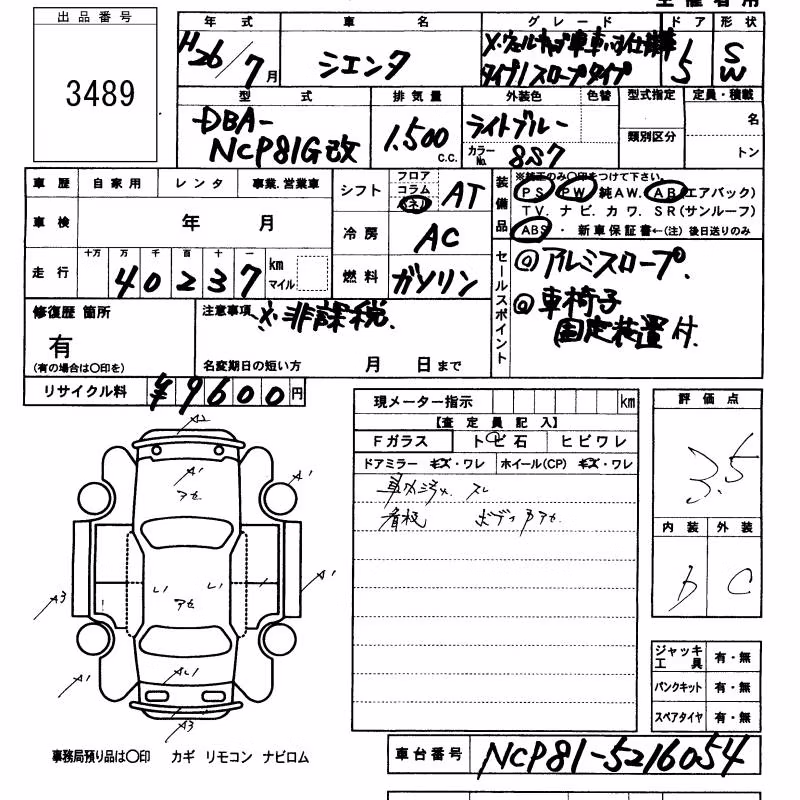 出品番号
3489
年式 車名 グレード ドア 形状
H26/7月 シエンタ X・ウェルキャブ車いす仕様車 タイプ1スロープタイプ 5 SW
型式 排気量 外装色 色替 型式指定 定員・積載
DBA-NCP81G改 1,500c.c. ライトブルー カラーNo. 8S7 類別区分 名 トン
車歴 自家用 レンタ 事業・営業車
シフト フロア コラム インパネ AT
装備品 ※純正のみ○印をつけて下さい。
PS PW 純AW. AB(エアバック)
TV. ナビ. カワ. SR(サンルーフ)
ABS ・ 新車保証書←(注) 後日送りのみ
車検 年 月
冷房 AC
走行 十万 万 千 百 十 一 40237 km マイル
燃料 ガソリン
セールスポイント
◎アルミスロープ.
◎車椅子
固定装置付.
修復歴 箇所
有
(有の場合は○印を)
注意事項 ※非課税.
名変期日の短い方 月 日まで
リサイクル料 ¥9600円
現メーター指示 km
【査定員記入】
Fガラス トビ石 ヒビワレ
ドアミラー キズ・ワレ ホイール(CP) キズ・ワレ
スレ
看板 ボディアセ
評価点
3.5
内装 外装
b C
A2
A1
アセ
A1
A3
レ1
レ1
アセ
A1
A1
A1
A3
ジャッキ工具 有・無
パンクキット 有・無
スペアタイヤ 有・無
事務局預り品は○印 カギ リモコン ナビロム
車台番号 NCP81-5216054